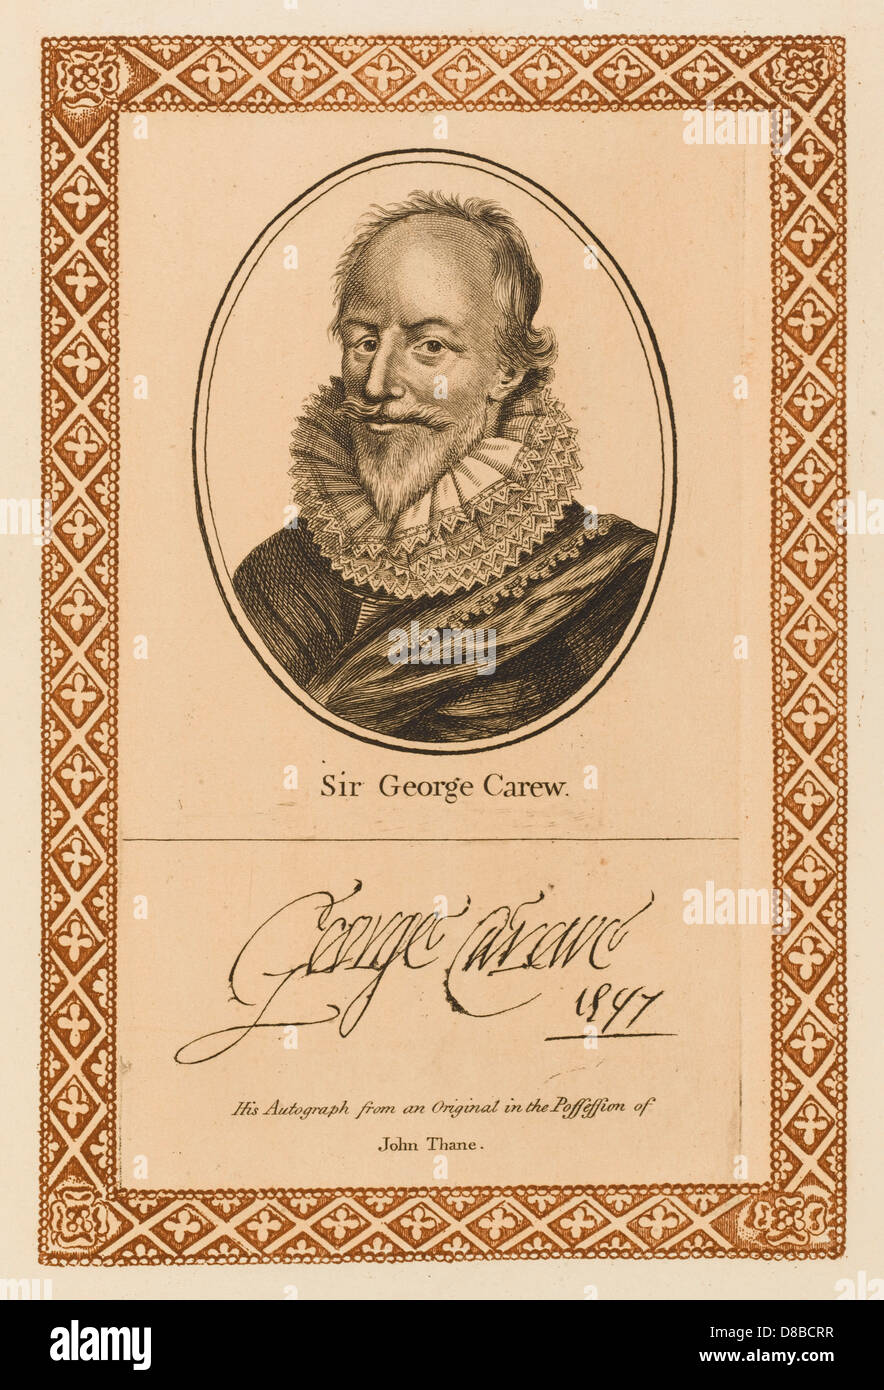 Sir George Carew.
George Carew
1597
His Autograph from an Original in the Poſseſsion of
John Thane.
a
alamy
alamy
Image ID: D8BCRR
www.alamy.com